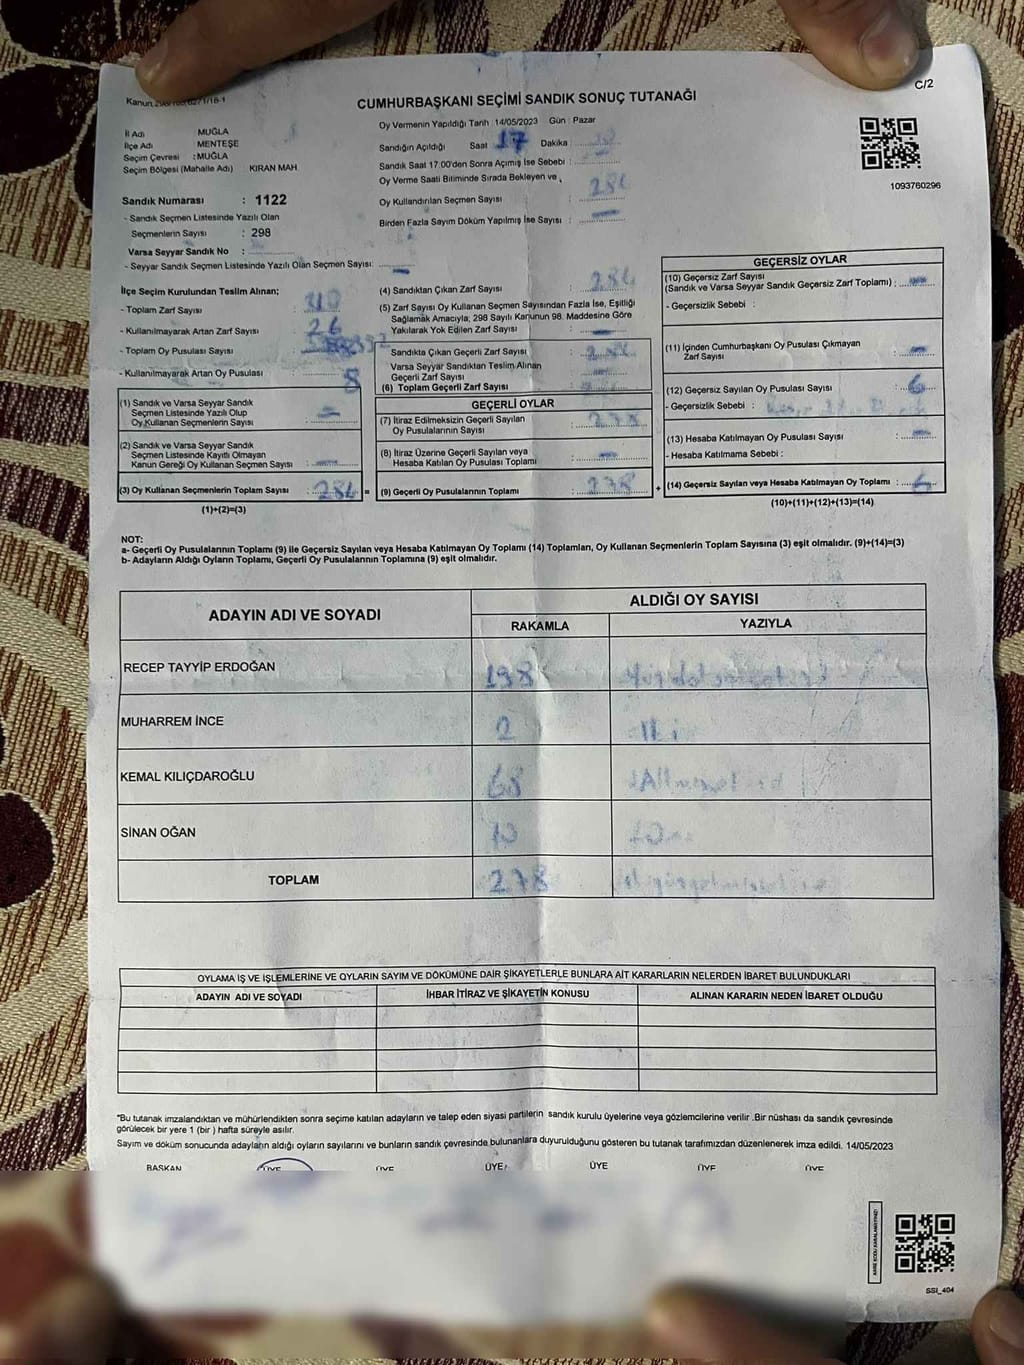 Kanun
C/2
CUMHURBAŞKANI SEÇİMİ SANDIK SONUÇ TUTANAĞI
İl Adı MUĞLA
İlçe Adı MENTEŞE
Seçim Çevresi : MUĞLA
Seçim Bölgesi (Mahalle Adı) KIRAN MAH
Sandık Numarası : 1122
- Sandık Seçmen Listesinde Yazılı Olan
Seçmenlerin Sayısı : 298
Varsa Seyyar Sandık No :
- Seyyar Sandık Seçmen Listesinde Yazılı Olan Seçmen Sayısı:
Oy Vermenin Yapıldığı Tarih : 14/05/2023 Gün : Pazar
Sandığın Açıldığı Saat 17 Dakika :
Sandık Saat 17:00'den Sonra Açılmış İse Sebebi :
Oy Verme Saati Bitiminde Sırada Bekleyen ve
Oy Kullandırılan Seçmen Sayısı :
Birden Fazla Sayım Döküm Yapılmış İse Sayısı :
1093760296
İlçe Seçim Kurulundan Teslim Alınan;
- Toplam Zarf Sayısı :
- Kullanılmayarak Artan Zarf Sayısı : 26
- Toplam Oy Pusulası Sayısı :
- Kullanılmayarak Artan Oy Pusulası
(1) Sandık ve Varsa Seyyar Sandık
Seçmen Listesinde Yazılı Olup
Oy Kullanan Seçmenlerin Sayısı :
(2) Sandık ve Varsa Seyyar Sandık
Seçmen Listesinde Kayıtlı Olmayan
Kanun Gereği Oy Kullanan Seçmen Sayısı :
(3) Oy Kullanan Seçmenlerin Toplam Sayısı : 284 =
(1)+(2)=(3)
(4) Sandıktan Çıkan Zarf Sayısı : 284
(5) Zarf Sayısı Oy Kullanan Seçmen Sayısından Fazla İse, Eşitliği
Sağlamak Amacıyla; 298 Sayılı Kanunun 98. Maddesine Göre
Yakılarak Yok Edilen Zarf Sayısı :
Sandıkta Çıkan Geçerli Zarf Sayısı : 284
Varsa Seyyar Sandıktan Teslim Alınan
Geçerli Zarf Sayısı :
(6) Toplam Geçerli Zarf Sayısı :
GEÇERLİ OYLAR
(7) İtiraz Edilmeksizin Geçerli Sayılan
Oy Pusulalarının Sayısı : 278
(8) İtiraz Üzerine Geçerli Sayılan veya
Hesaba Katılan Oy Pusulası Toplamı :
(9) Geçerli Oy Pusulalarının Toplamı : 278 +
GEÇERSİZ OYLAR
(10) Geçersiz Zarf Sayısı
(Sandık ve Varsa Seyyar Sandık Geçersiz Zarf Toplamı) :
- Geçersizlik Sebebi :
(11) İçinden Cumhurbaşkanı Oy Pusulası Çıkmayan
Zarf Sayısı :
(12) Geçersiz Sayılan Oy Pusulası Sayısı : 6
- Geçersizlik Sebebi :
(13) Hesaba Katılmayan Oy Pusulası Sayısı :
- Hesaba Katılmama Sebebi :
(14) Geçersiz Sayılan veya Hesaba Katılmayan Oy Toplamı : 6
(10)+(11)+(12)+(13)=(14)
NOT:
a- Geçerli Oy Pusulalarının Toplamı (9) ile Geçersiz Sayılan veya Hesaba Katılmayan Oy Toplamı (14) Toplamları, Oy Kullanan Seçmenlerin Toplam Sayısına (3) eşit olmalıdır. (9)+(14)=(3)
b- Adayların Aldığı Oyların Toplamı, Geçerli Oy Pusulalarının Toplamına (9) eşit olmalıdır.
ADAYIN ADI VE SOYADI ALDIĞI OY SAYISI
RAKAMLA YAZIYLA
RECEP TAYYİP ERDOĞAN 198
MUHARREM İNCE 2 iki
KEMAL KILIÇDAROĞLU 68
SİNAN OĞAN 10
TOPLAM 278
OYLAMA İŞ VE İŞLEMLERİNE VE OYLARIN SAYIM VE DÖKÜMÜNE DAİR ŞİKAYETLERLE BUNLARA AİT KARARLARIN NELERDEN İBARET BULUNDUKLARI
ADAYIN ADI VE SOYADI İHBAR İTİRAZ VE ŞİKAYETİN KONUSU ALINAN KARARIN NEDEN İBARET OLDUĞU
*Bu tutanak imzalandıktan ve mühürlendikten sonra seçime katılan adayların ve talep eden siyasi partilerin sandık kurulu üyelerine veya gözlemcilerine verilir .Bir nüshası da sandık çevresinde
görülecek bir yere 1 (bir ) hafta süreyle asılır.
Sayım ve döküm sonucunda adayların aldığı oyların sayılarını ve bunların sandık çevresinde bulunanlara duyurulduğunu gösteren bu tutanak tarafımızdan düzenlenerek imza edildi. 14/05/2023
BAŞKAN ÜYE ÜYE ÜYE ÜYE ÜYE ÜYE
SSI_404